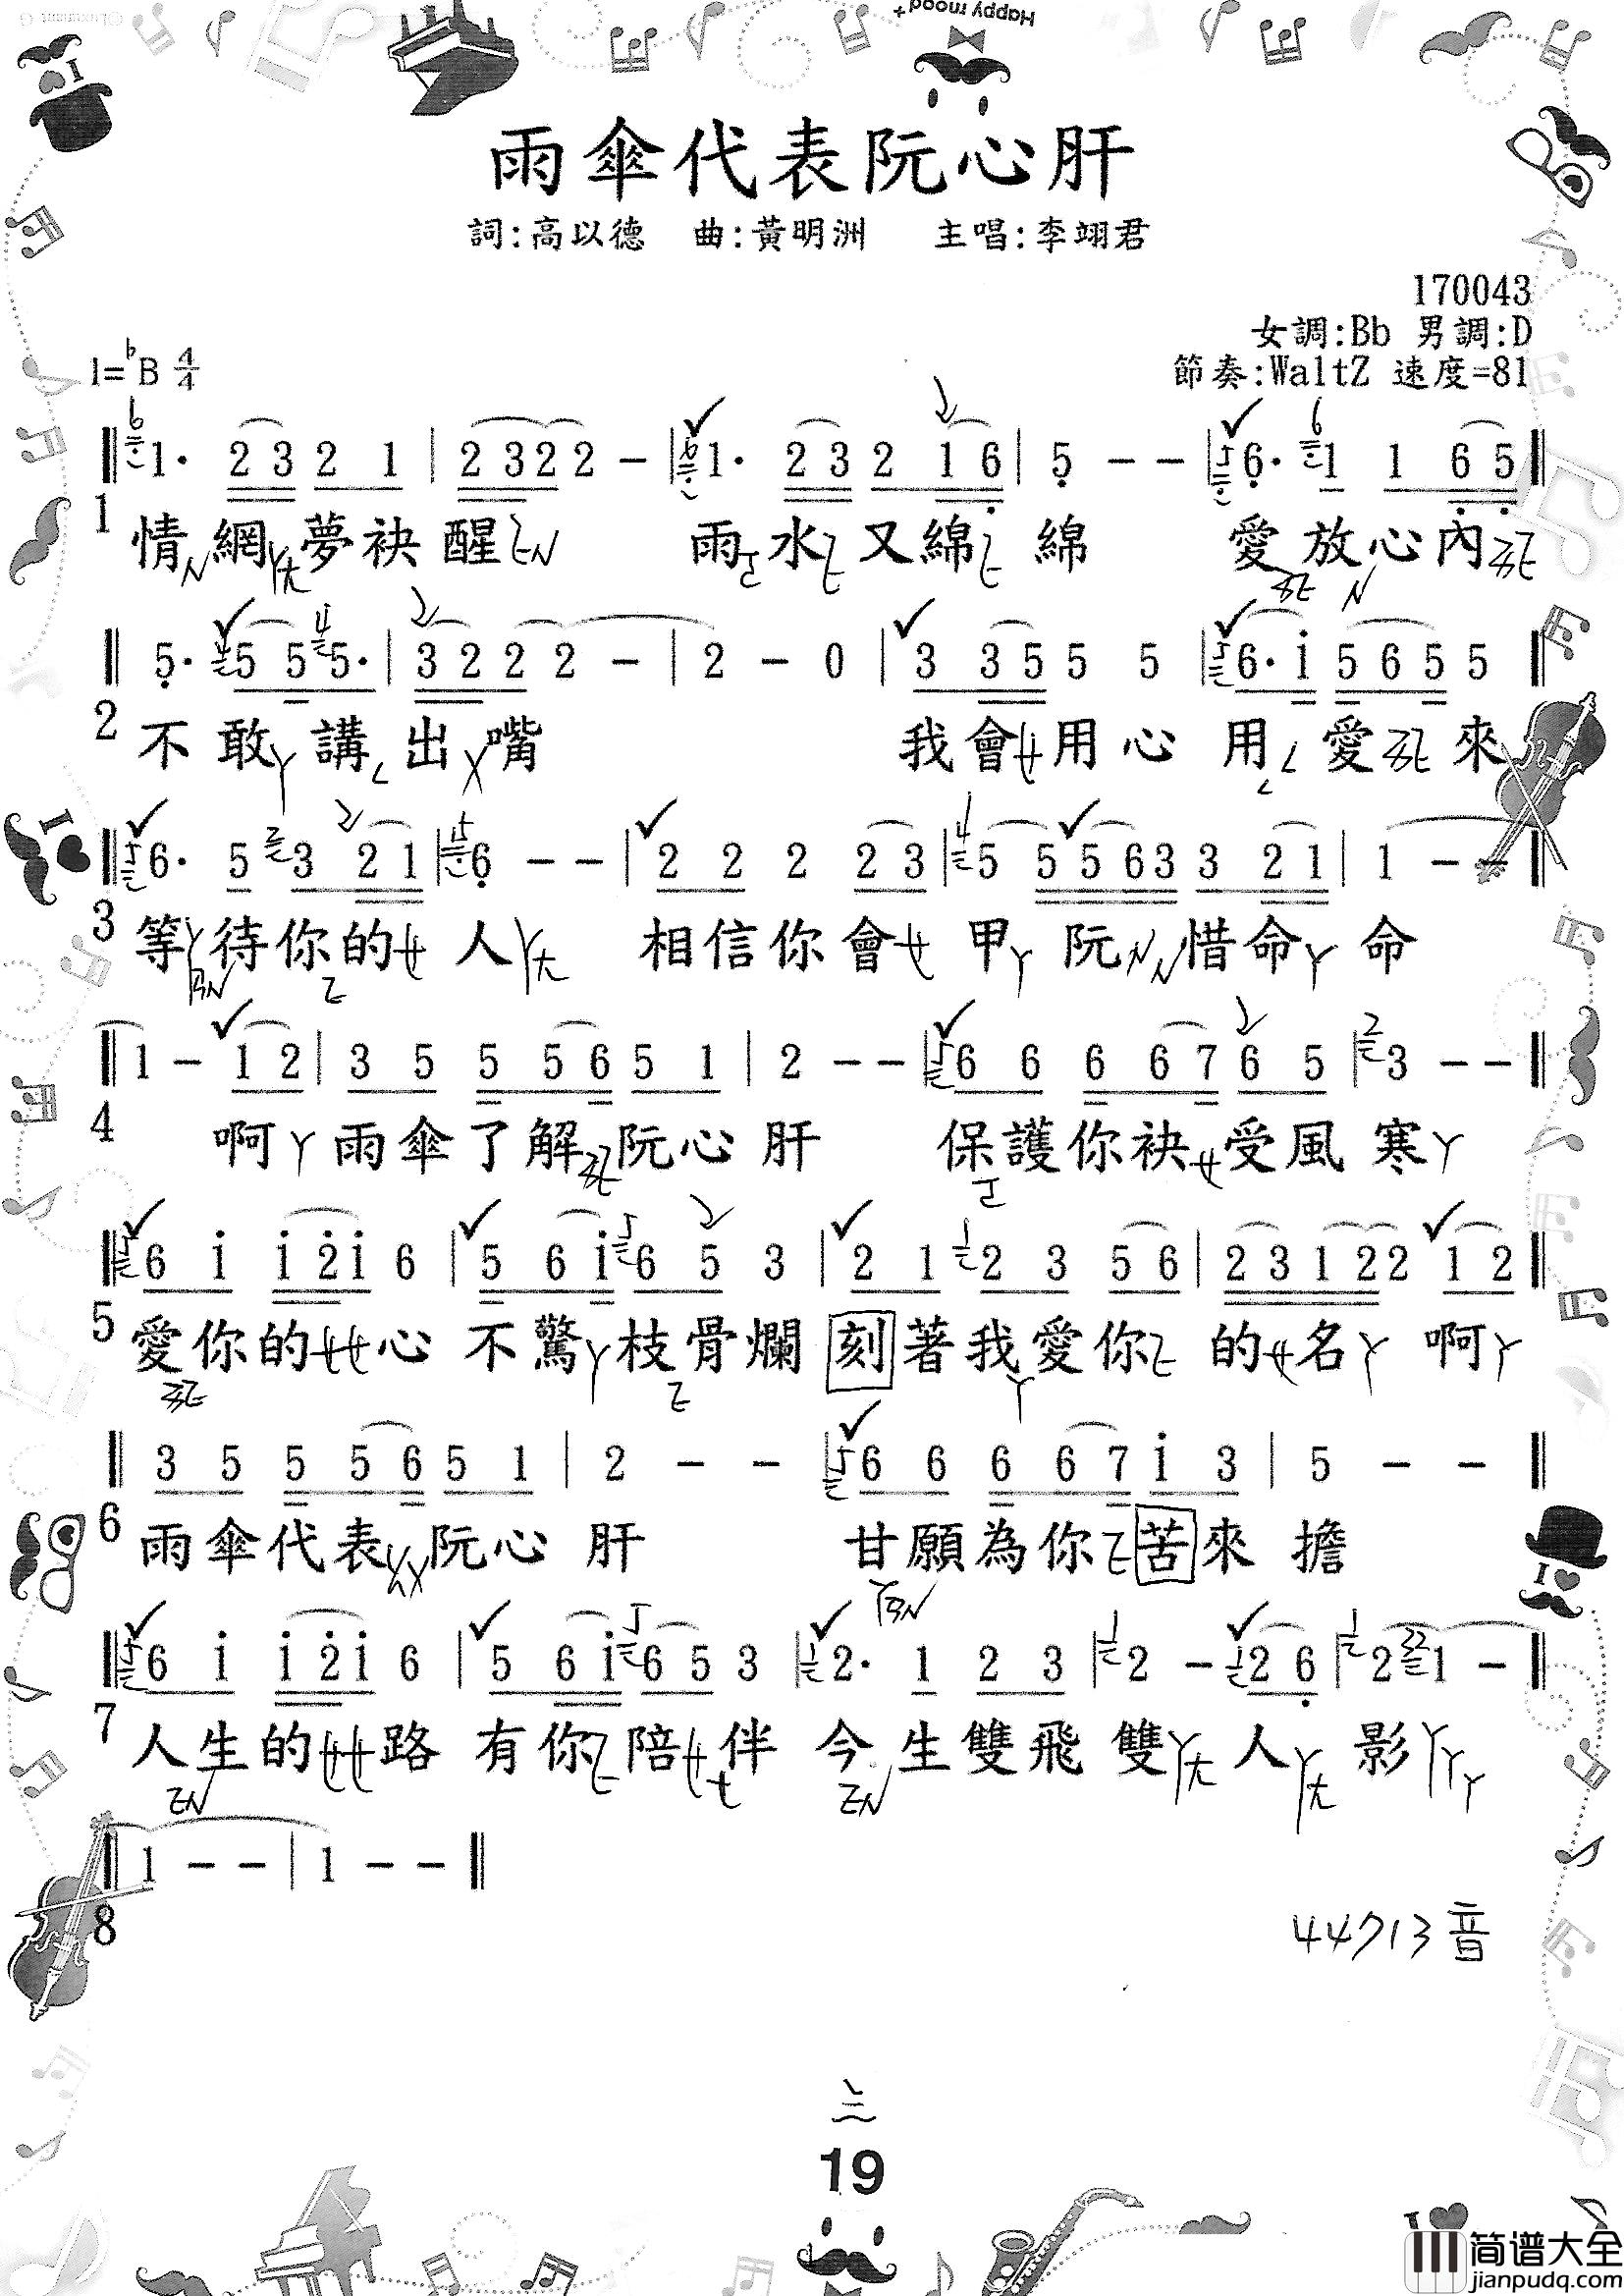 Happy mood+
雨傘代表阮心肝
詞:高以德 曲:黃明洲 主唱:李翊君
170043
女調:Bb 男調:D
1=♭B 4/4 節奏:WaltZ 速度=81
1· 2 3 2 1 | 2 3 2 2 - | 1· 2 3 2 1 6 | 5 - - | 6· 1 1 6 5
1 情網夢袂醒 雨水又綿綿 愛放心內
5· 5 5 5· | 3 2 2 2 - | 2 - 0 | 3 3 5 5 5 | 6· i 5 6 5 5
2 不敢講出嘴 我會用心用愛來
6· 5 3 2 1 | 6 - - | 2 2 2 2 3 | 5 5 5 6 3 3 2 1 | 1 - -
3 等待你的人 相信你會甲阮惜命命
1 - 1 2 | 3 5 5 5 6 5 1 | 2 - - | 6 6 6 6 7 6 5 | 3 - -
4 啊雨傘了解阮心肝 保護你袂受風寒
6 i i 2 i 6 | 5 6 i 6 5 3 | 2 1 2 3 5 6 | 2 3 1 2 2 1 2
5 愛你的心 不驚枝骨爛 刻著我愛你的名 啊
3 5 5 5 6 5 1 | 2 - - | 6 6 6 6 7 i 3 | 5 - -
6 雨傘代表阮心肝 甘願為你苦來擔
6 i i 2 i 6 | 5 6 i 6 5 3 | 2· 1 2 3 | 2 - 2 6 | 2 1 -
7 人生的路 有你陪伴 今生雙飛雙人影
1 - - | 1 - -
8
44713音
19
简谱大全
jianpudq.com